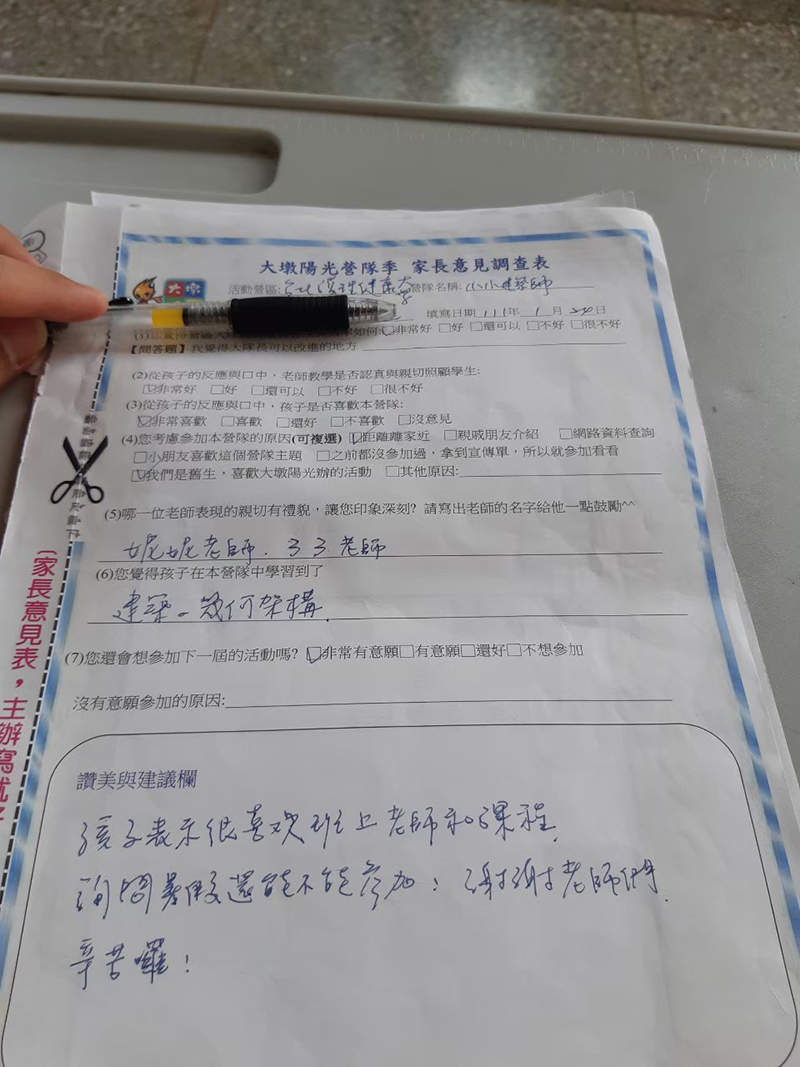 大墩陽光營隊季 家長意見調查表
大墩
活動營區:台北護理健康大學 營隊名稱:小小建築師
填寫日期 111年 1月 20日
如何:☑非常好 □好 □還可以 □不好 □很不好
【問答題】我覺得大隊長可以改進的地方
(2)從孩子的反應與口中，老師教學是否認真與親切照顧學生:
☑非常好 □好 □還可以 □不好 □很不好
(3)從孩子的反應與口中，孩子是否喜歡本營隊:
☑非常喜歡 □喜歡 □還好 □不喜歡 □沒意見
(4)您考慮參加本營隊的原因(可複選) ☑距離離家近 □親戚朋友介紹 □網路資料查詢
□小朋友喜歡這個營隊主題 □之前都沒參加過，拿到宣傳單，所以就參加看看
☑我們是舊生，喜歡大墩陽光辦的活動 □其他原因:
(5)哪一位老師表現的親切有禮貌，讓您印象深刻? 請寫出老師的名字給他一點鼓勵^^
妮妮老師．ㄋㄋ老師
(6)您覺得孩子在本營隊中學習到了
建築。幾何架構.
(7)您還會想參加下一屆的活動嗎? ☑非常有意願□有意願□還好□不想參加
沒有意願參加的原因:
讚美與建議欄
孩子表示很喜欢班上老師和課程.
詢問暑假還能不能參加! 謝謝老師們.
辛苦囉!
(家長意見表，主辦寫就